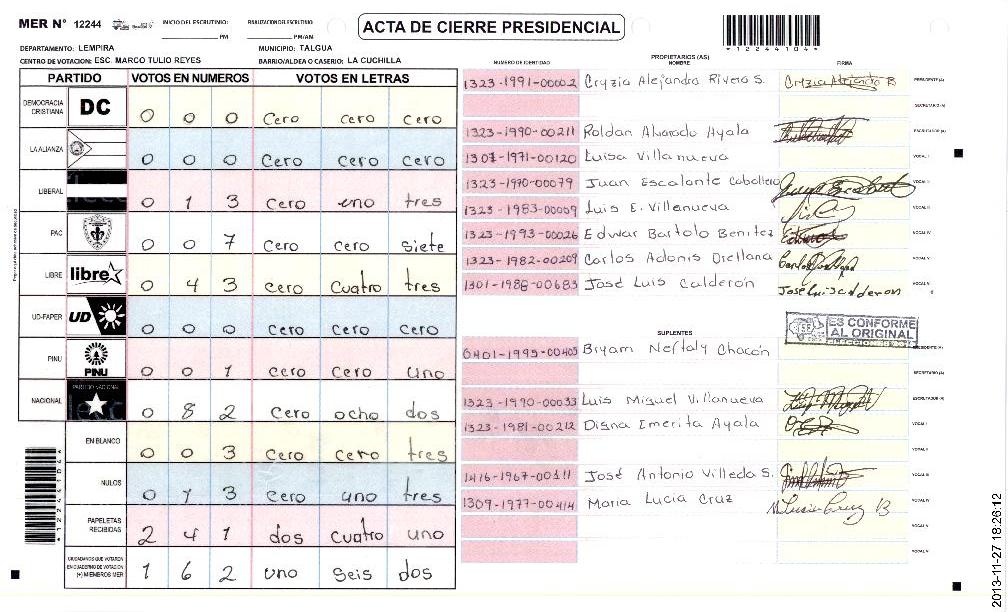 MER N° 12244
INICIO DEL ESCRUTINIO: PM
FINALIZACION DEL ESCRUTINIO PM/AM
ACTA DE CIERRE PRESIDENCIAL
*12244104*
DEPARTAMENTO: LEMPIRA MUNICIPIO: TALGUA
CENTRO DE VOTACION: ESC. MARCO TULIO REYES BARRIO/ALDEA O CASERIO: LA CUCHILLA
PARTIDO VOTOS EN NUMEROS VOTOS EN LETRAS
DEMOCRACIA CRISTIANA DC 0 0 0 Cero cero cero
LA ALIANZA 0 0 0 Cero Cero Cero
LIBERAL 0 1 3 Cero uno tres
PAC 0 0 7 Cero cero siete
LIBRE libre 0 4 3 Cero Cuatro tres
UD-FAPER UD 0 0 0 Cero Cero Cero
PINU PINU 0 0 1 Cero Cero uno
NACIONAL PARTIDO NACIONAL 0 8 2 Cero ocho dos
EN BLANCO 0 0 3 Cero Cero tres
NULOS 0 1 3 Cero uno tres
PAPELETAS RECIBIDAS 2 4 1 dos Cuatro uno
CIUDADANOS QUE VOTARON EN CUADERNO DE VOTACION (+) MIEMBROS MER 1 6 2 uno Seis dos
PROPIETARIOS (AS)
NUMERO DE IDENTIDAD NOMBRE FIRMA
1323-1991-00002 Cryzia Alejandra Rivera S. PRESIDENTE (A)
SECRETARIO (A)
1323-1990-00211 Roldan Alvarado Ayala ESCRUTADOR (A)
1307-1971-00120 Luisa Villanueva VOCAL I
1323-1970-00079 Juan Escalante Caballero VOCAL II
1323-1983-00059 Luis E. Villanueva VOCAL III
1323-1993-00026 Edwar Bartolo Benitez VOCAL IV
1323-1982-00209 Carlos Adonis Orellana VOCAL V
1301-1988-00683 José Luis Calderón Jose Luis calderon
ES CONFORME AL ORIGINAL
SUPLENTES
0401-1995-00405 Bryam Neftaly Chacón PRESIDENTE (A)
SECRETARIO (A)
1323-1990-00033 Luis Miguel Villanueva ESCRUTADOR (A)
1323-1981-00212 Digna Emerita Ayala VOCAL I
VOCAL II
1416-1967-00111 José Antonio Villeda S. VOCAL III
1309-1977-00414 Maria Lucia Cruz VOCAL IV
VOCAL V
*12244104*
2013-11-27 18:26:12